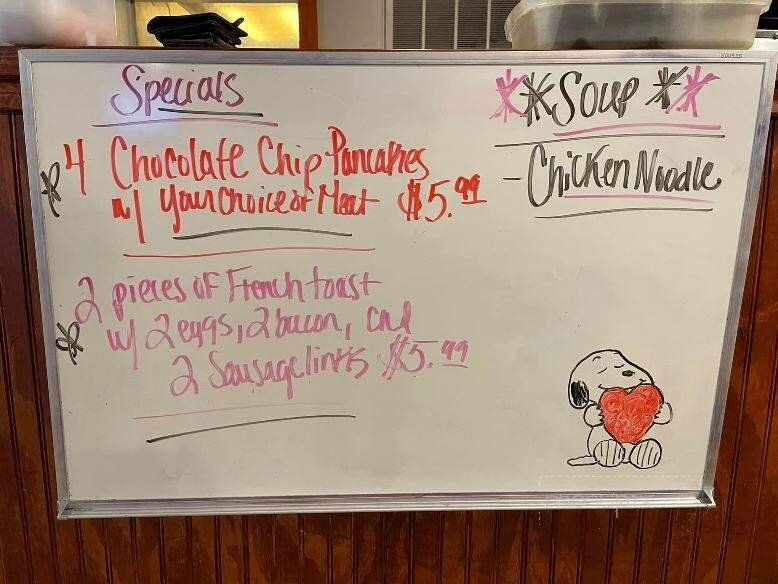 Specials
4 Chocolate Chip Pancakes
w/ Your Choice of Meat $5.99
2 pieces of French toast
w/ 2 eggs, 2 bacon, and
2 Sausage links $5.99
**Soup**
- Chicken Noodle